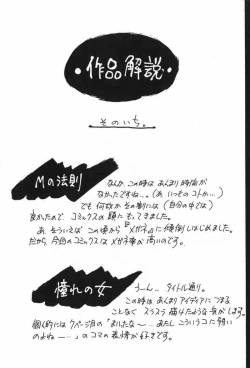 ・作品解説・
そのいち。
Mの法則
なんか この時は あんまり 時間が
なかったですね…。(あ、いつものコトか…)
でも 何故か その割には (自分の中では)
良かったので、コミックスの頭に もってきました。
あ、そういえば この頃から『メガネ』に傾倒しはじめました。
だから、今回のコミックスは メガネ率が 高いのです。
憧れの女
うーん… タイトル通り。
この時は あんまり アイディアに つまる
ことなく スラスラ 描けたような 気がします。
個人的には ページ目の「まいったな〜…あたし こういうコに 弱い
のよね〜…」のコマの 表情が 好きです。